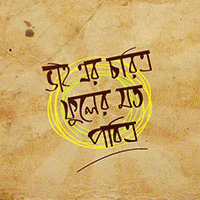 ভাই এর চরিত্র
ফুলের মত
পবিত্র